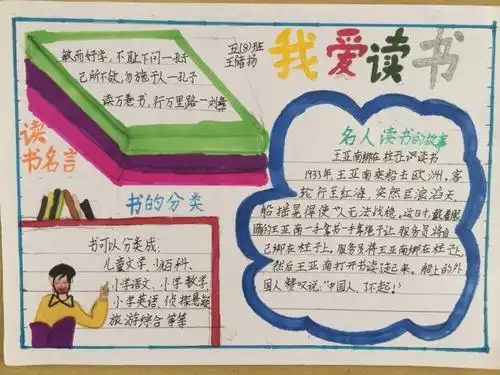 敏而好学，不耻下问一孔子
己所不欲，勿施于人一孔子
读万卷书，行万里路一刘彝
五(8)班
王皓扬
我爱读书
读
书名言
书的分类
书可以分类成：
儿童文学、少儿百科、
小学语文、小学数学、
小学英语、侦探悬疑
旅游综合 等等
名人读书的故事
王亚南绑在柱子上识读书
1933年，王亚南乘船去欧洲，客
轮行至红海，突然巨浪滔天，
船摇晃得使人无法战稳，这时，戴着眼
睛的王亚南一手拿书一手拿绳子让服务员将自
己绑在柱子上。服务员将王亚南绑在柱子上
然后王亚南打开书读起来。船上的外
国人赞叹说："中国人，了不起！"